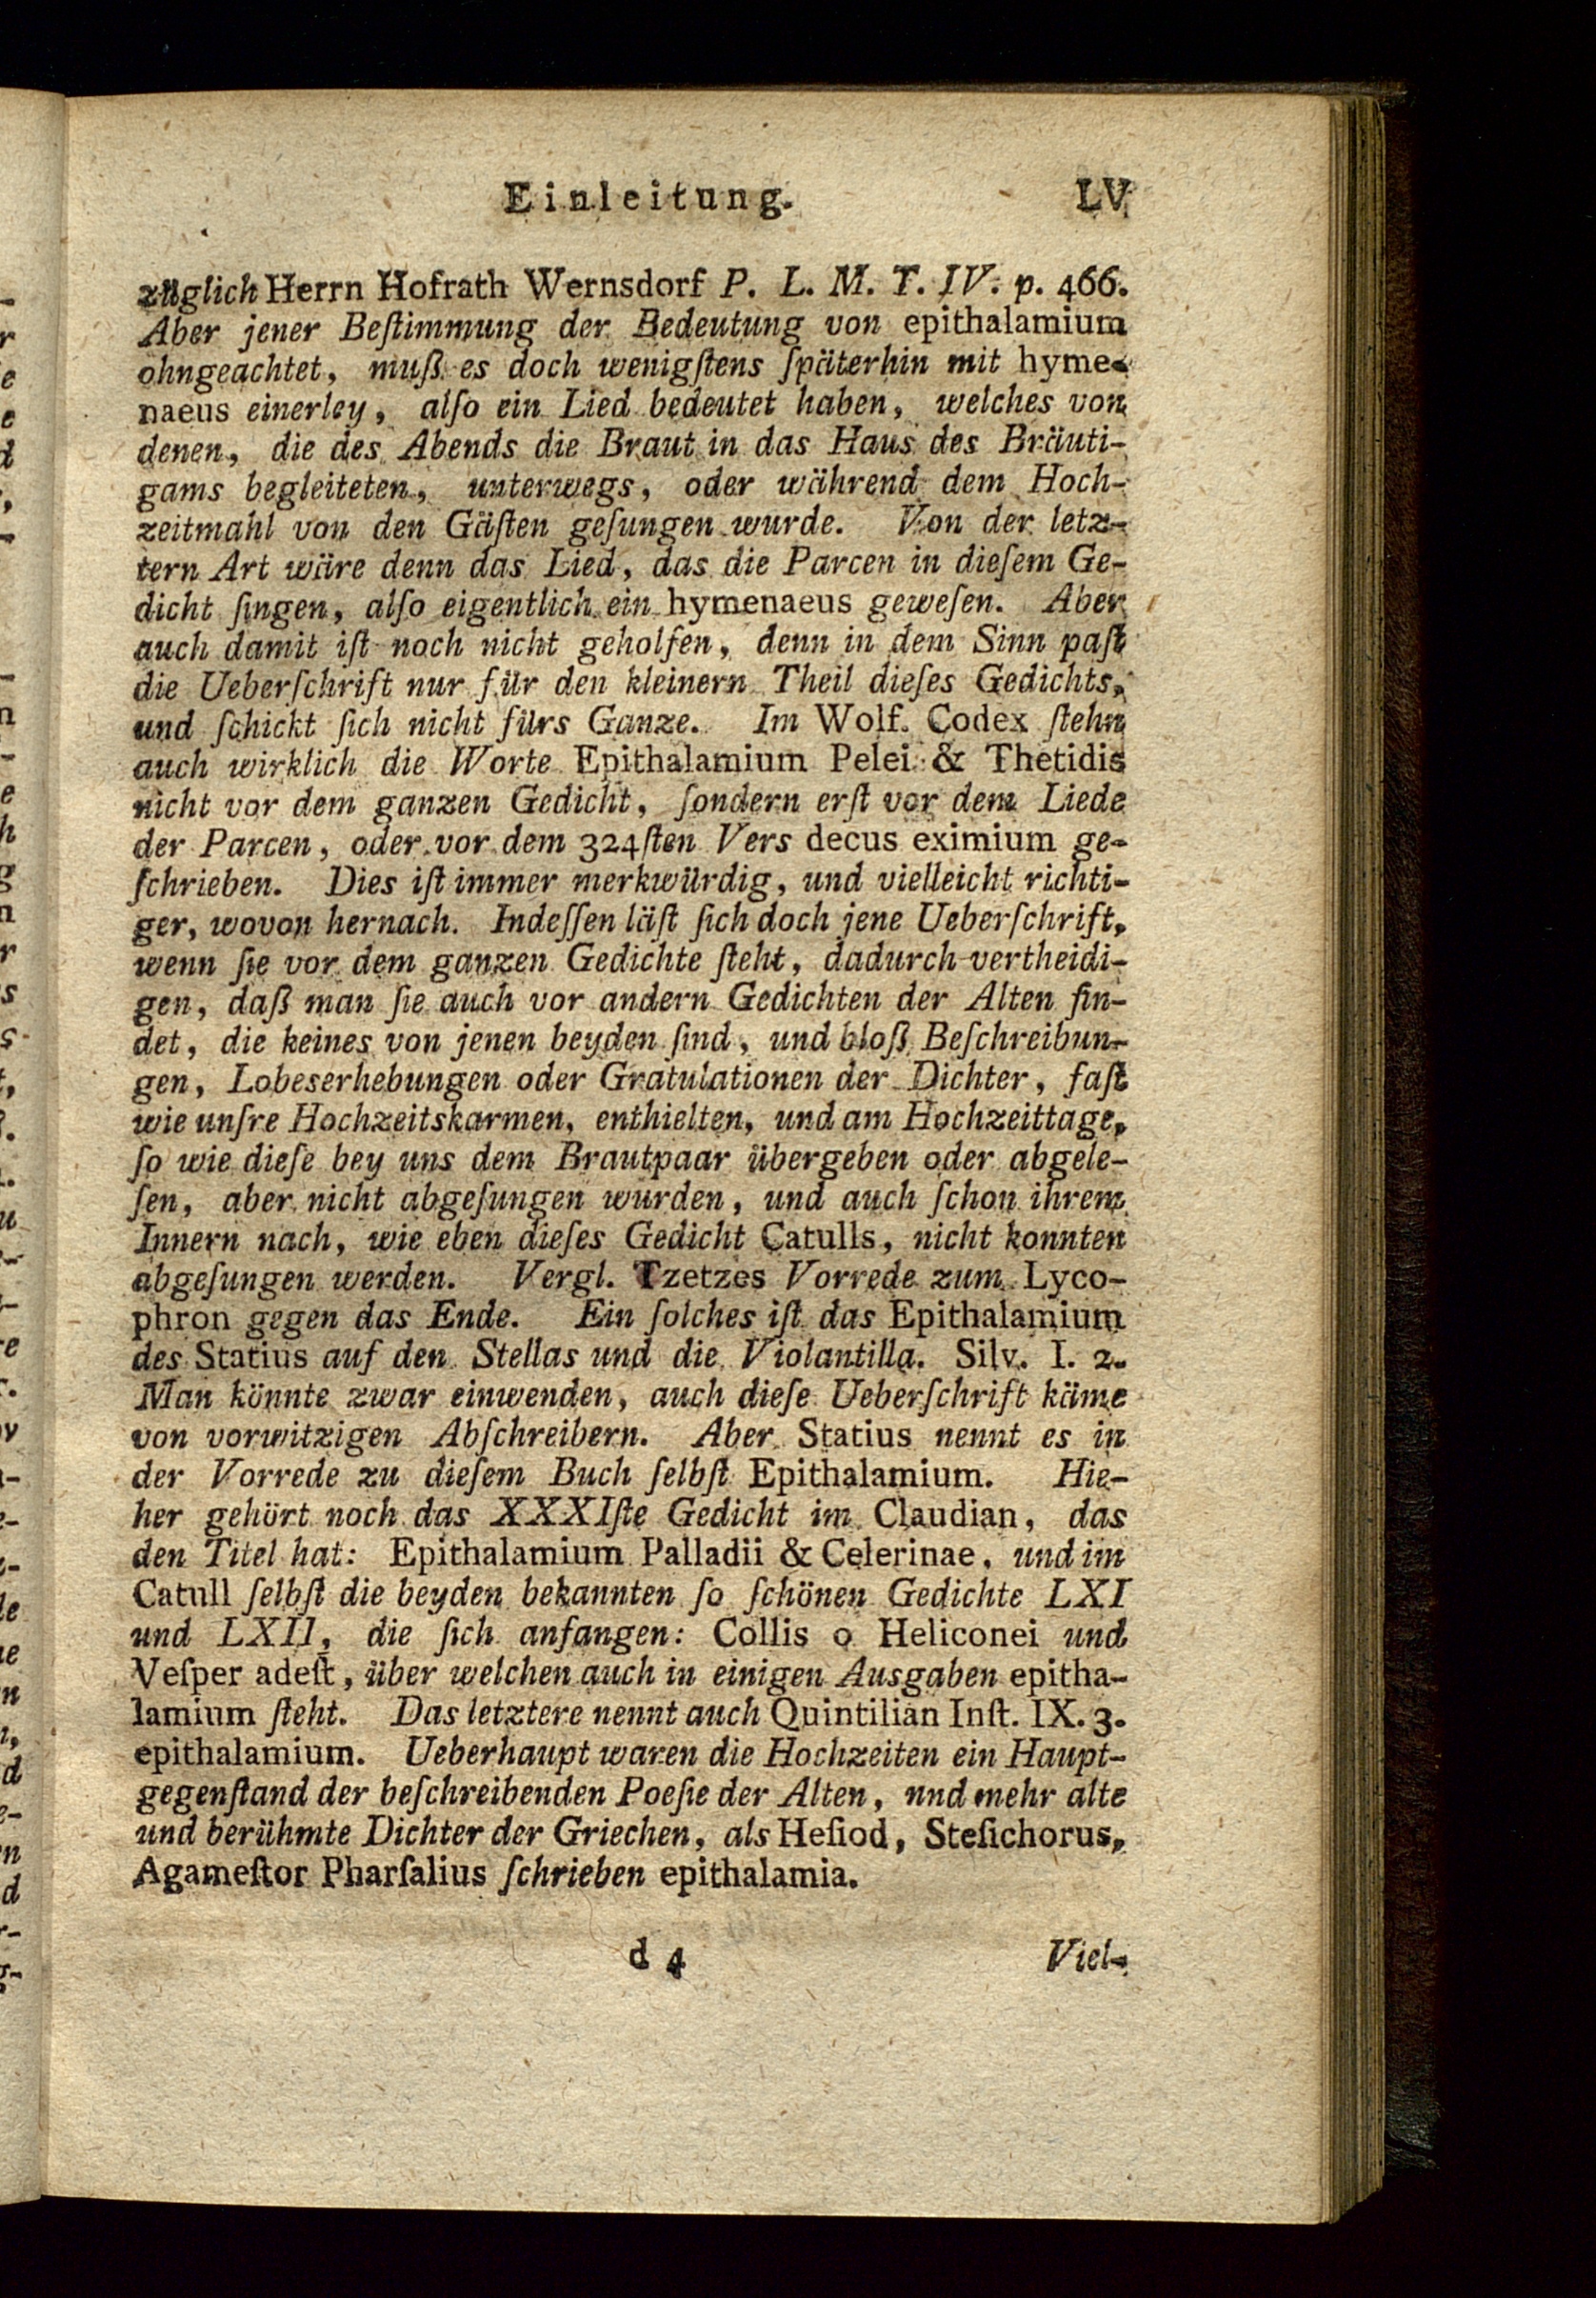 Einleitung. LV
züglich Herrn Hofrath Wernsdorf P. L. M. T. IV. p. 466.
Aber jener Beſtimmung der Bedeutung von epithalamium
ohngeachtet, muß es doch wenigſtens ſpäterhin mit hyme-
naeus einerley, alſo ein Lied bedeutet haben, welches von
denen, die des Abends die Braut in das Haus des Bräuti-
gams begleiteten, unterwegs, oder während dem Hoch-
zeitmahl von den Gäſten geſungen wurde. Von der letz-
tern Art wäre denn das Lied, das die Parcen in dieſem Ge-
dicht ſingen, alſo eigentlich ein hymenaeus geweſen. Aber
auch damit iſt noch nicht geholfen, denn in dem Sinn paſt
die Ueberſchrift nur für den kleinern Theil dieſes Gedichts,
und ſchickt ſich nicht fürs Ganze. Im Wolf. Codex ſtehn
auch wirklich die Worte Epithalamium Pelei & Thetidis
nicht vor dem ganzen Gedicht, ſondern erſt vor dem Liede
der Parcen, oder vor dem 324ſten Vers decus eximium ge-
ſchrieben. Dies iſt immer merkwürdig, und vielleicht richti-
ger, wovon hernach. Indeſſen läſt ſich doch jene Ueberſchrift,
wenn ſie vor dem ganzen Gedichte ſteht, dadurch vertheidi-
gen, daß man ſie auch vor andern Gedichten der Alten fin-
det, die keines von jenen beyden ſind, und bloß Beſchreibun-
gen, Lobeserhebungen oder Gratulationen der Dichter, faſt
wie unſre Hochzeitskarmen, enthielten, und am Hochzeittage,
ſo wie dieſe bey uns dem Brautpaar übergeben oder abgele-
ſen, aber nicht abgeſungen wurden, und auch ſchon ihrem
Innern nach, wie eben dieſes Gedicht Catulls, nicht konnten
abgeſungen werden. Vergl. Tzetzes Vorrede zum Lyco-
phron gegen das Ende. Ein ſolches iſt das Epithalamium
des Statius auf den Stellas und die Violantilla. Silv. I. 2.
Man könnte zwar einwenden, auch dieſe Ueberſchrift käme
von vorwitzigen Abſchreibern. Aber Statius nennt es in
der Vorrede zu dieſem Buch ſelbſt Epithalamium. Hie-
her gehört noch das XXXIſte Gedicht im Claudian, das
den Titel hat: Epithalamium Palladii & Celerinae, und im
Catull ſelbſt die beyden bekannten ſo ſchönen Gedichte LXI
und LXII, die ſich anfangen: Collis o Heliconei und
Veſper adeſt, über welchen auch in einigen Ausgaben epitha-
lamium ſteht. Das letztere nennt auch Quintilian Inſt. IX. 3.
epithalamium. Ueberhaupt waren die Hochzeiten ein Haupt-
gegenſtand der beſchreibenden Poeſie der Alten, nnd mehr alte
und berühmte Dichter der Griechen, als Heſiod, Steſichorus,
Agameſtor Pharſalius ſchrieben epithalamia.
d 4 Viel-